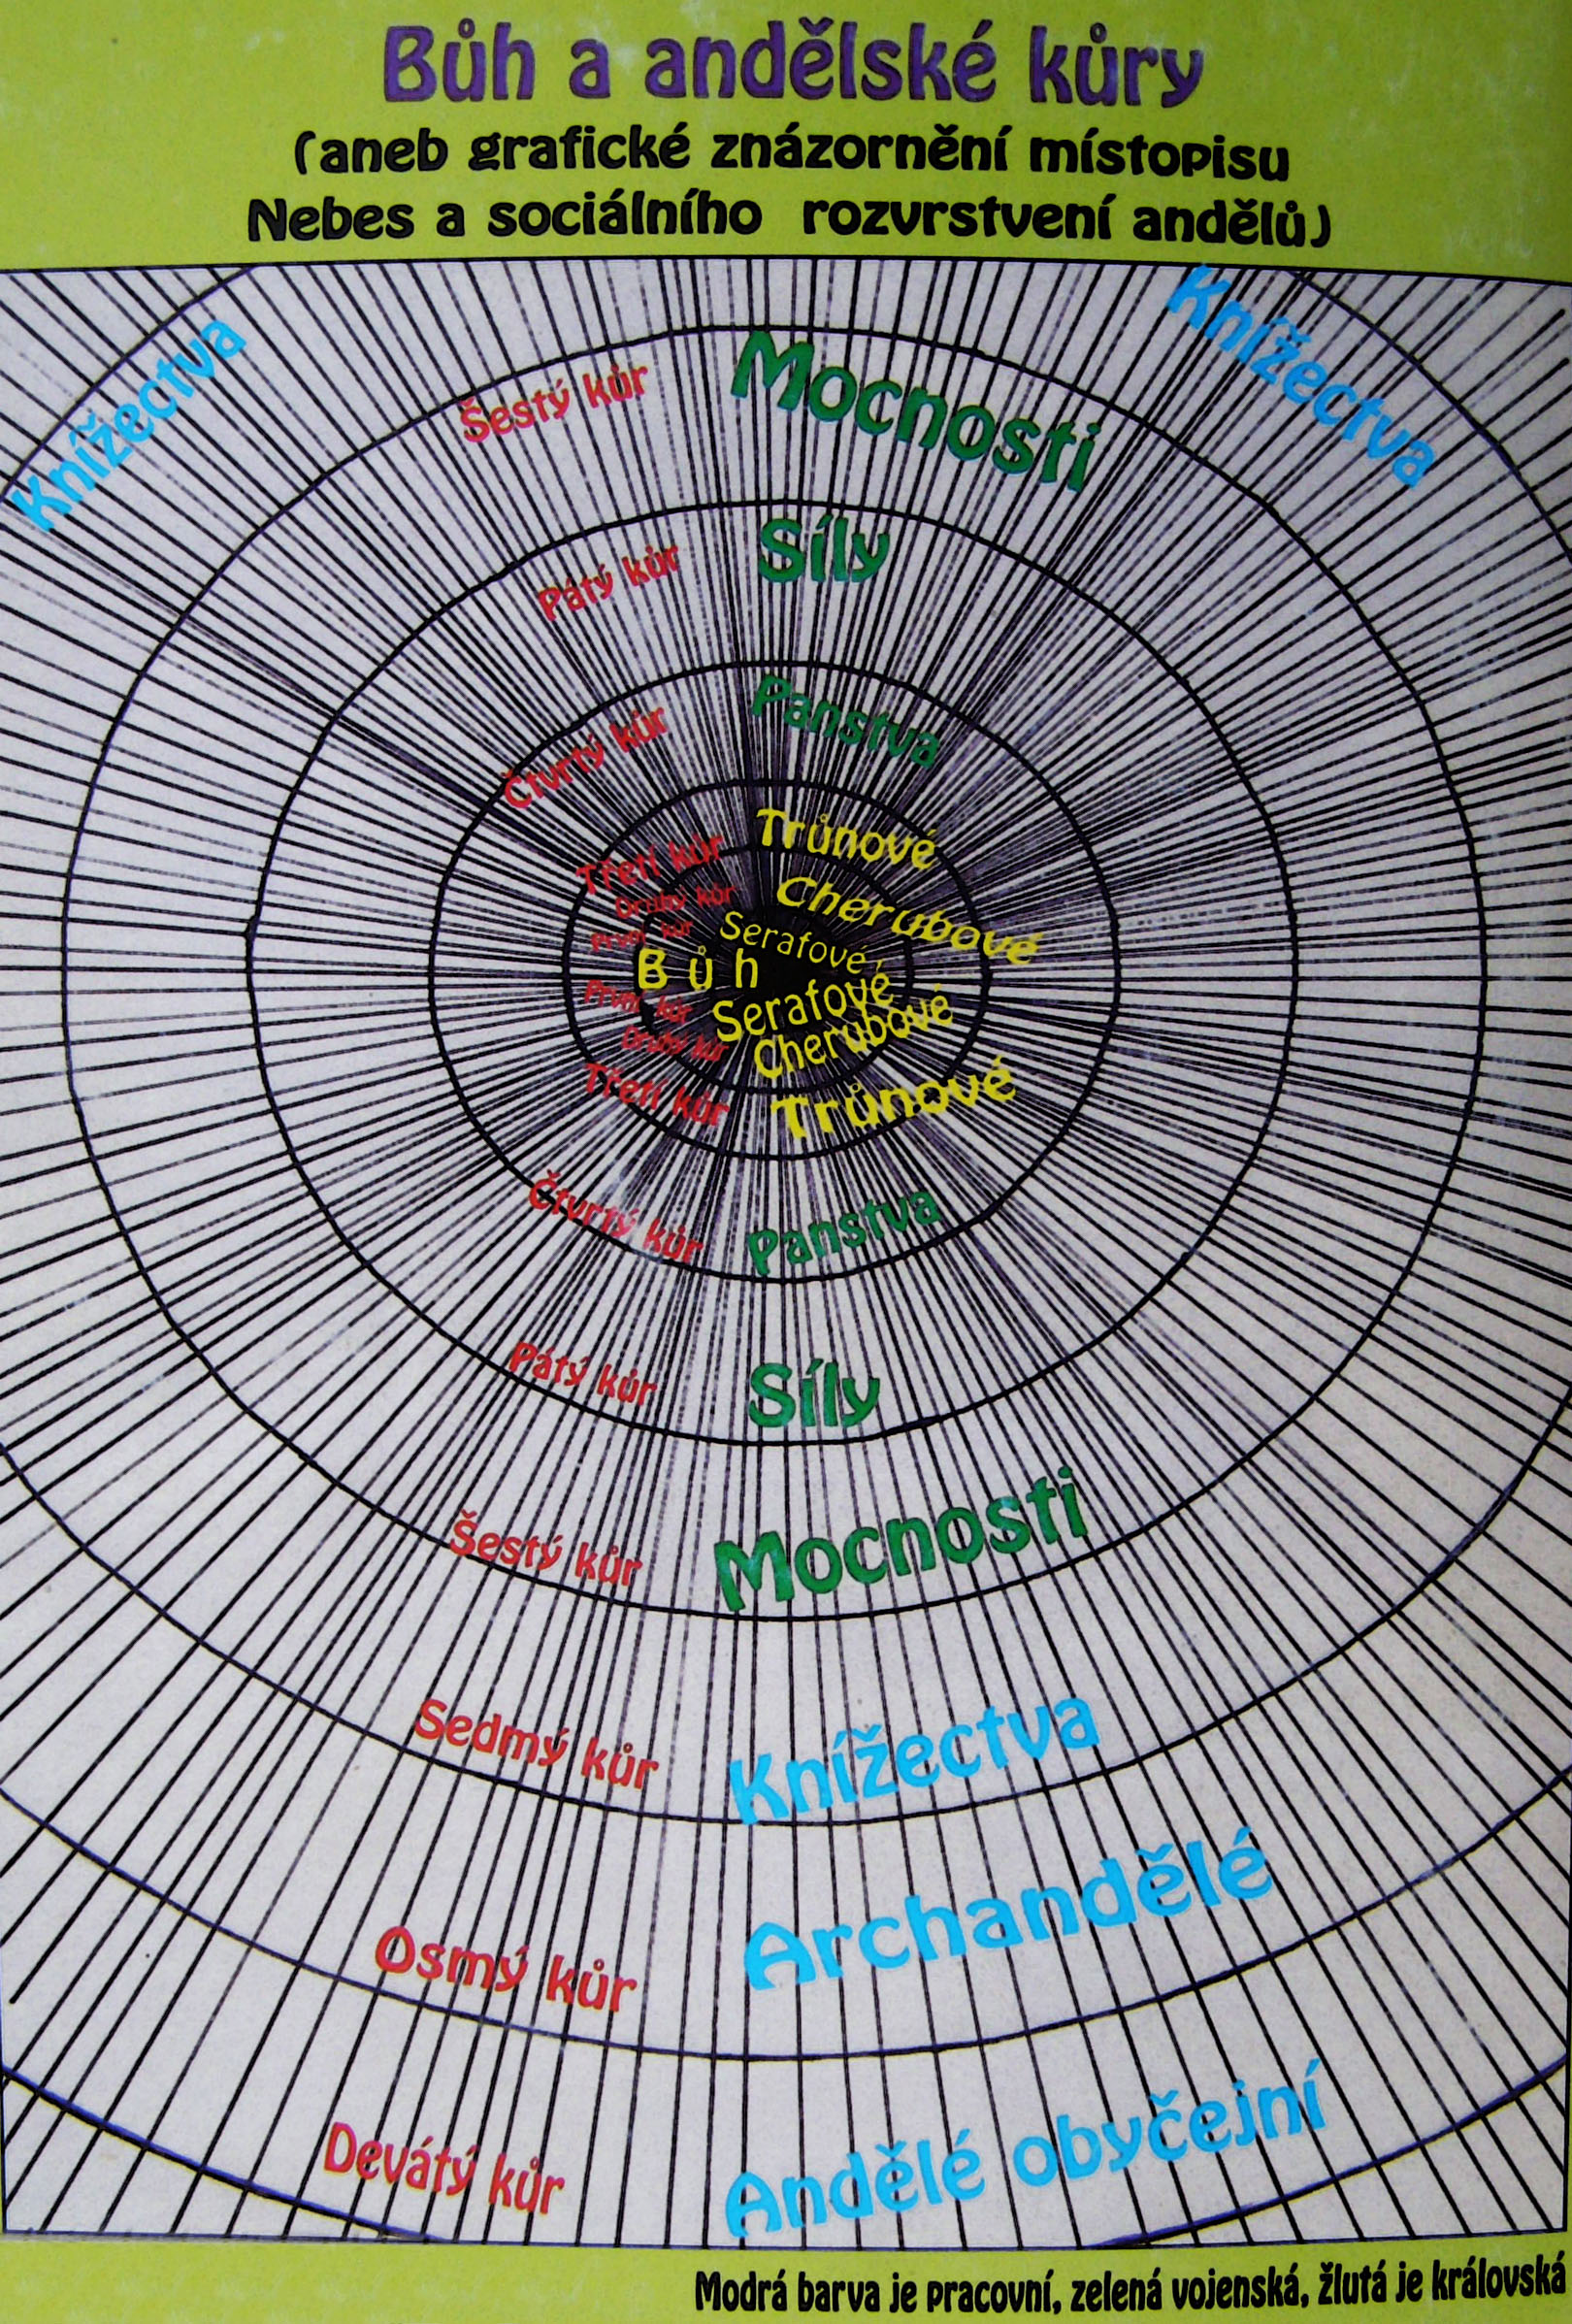 Bůh a andělské kůry
(aneb grafické znázornění místopisu
Nebes a sociálního rozvrstvení andělů)
Knížectva
Knížectva
Šestý kůr Mocnosti
Pátý kůr Síly
Čtvrtý kůr Panstva
Třetí kůr Trůnové
Druhý kůr Cherubové
První kůr Serafové
Bůh
První kůr Serafové
Druhý kůr Cherubové
Třetí kůr Trůnové
Čtvrtý kůr Panstva
Pátý kůr Síly
Šestý kůr Mocnosti
Sedmý kůr Knížectva
Osmý kůr Archandělé
Devátý kůr Andělé obyčejní
Modrá barva je pracovní, zelená vojenská, žlutá je královská